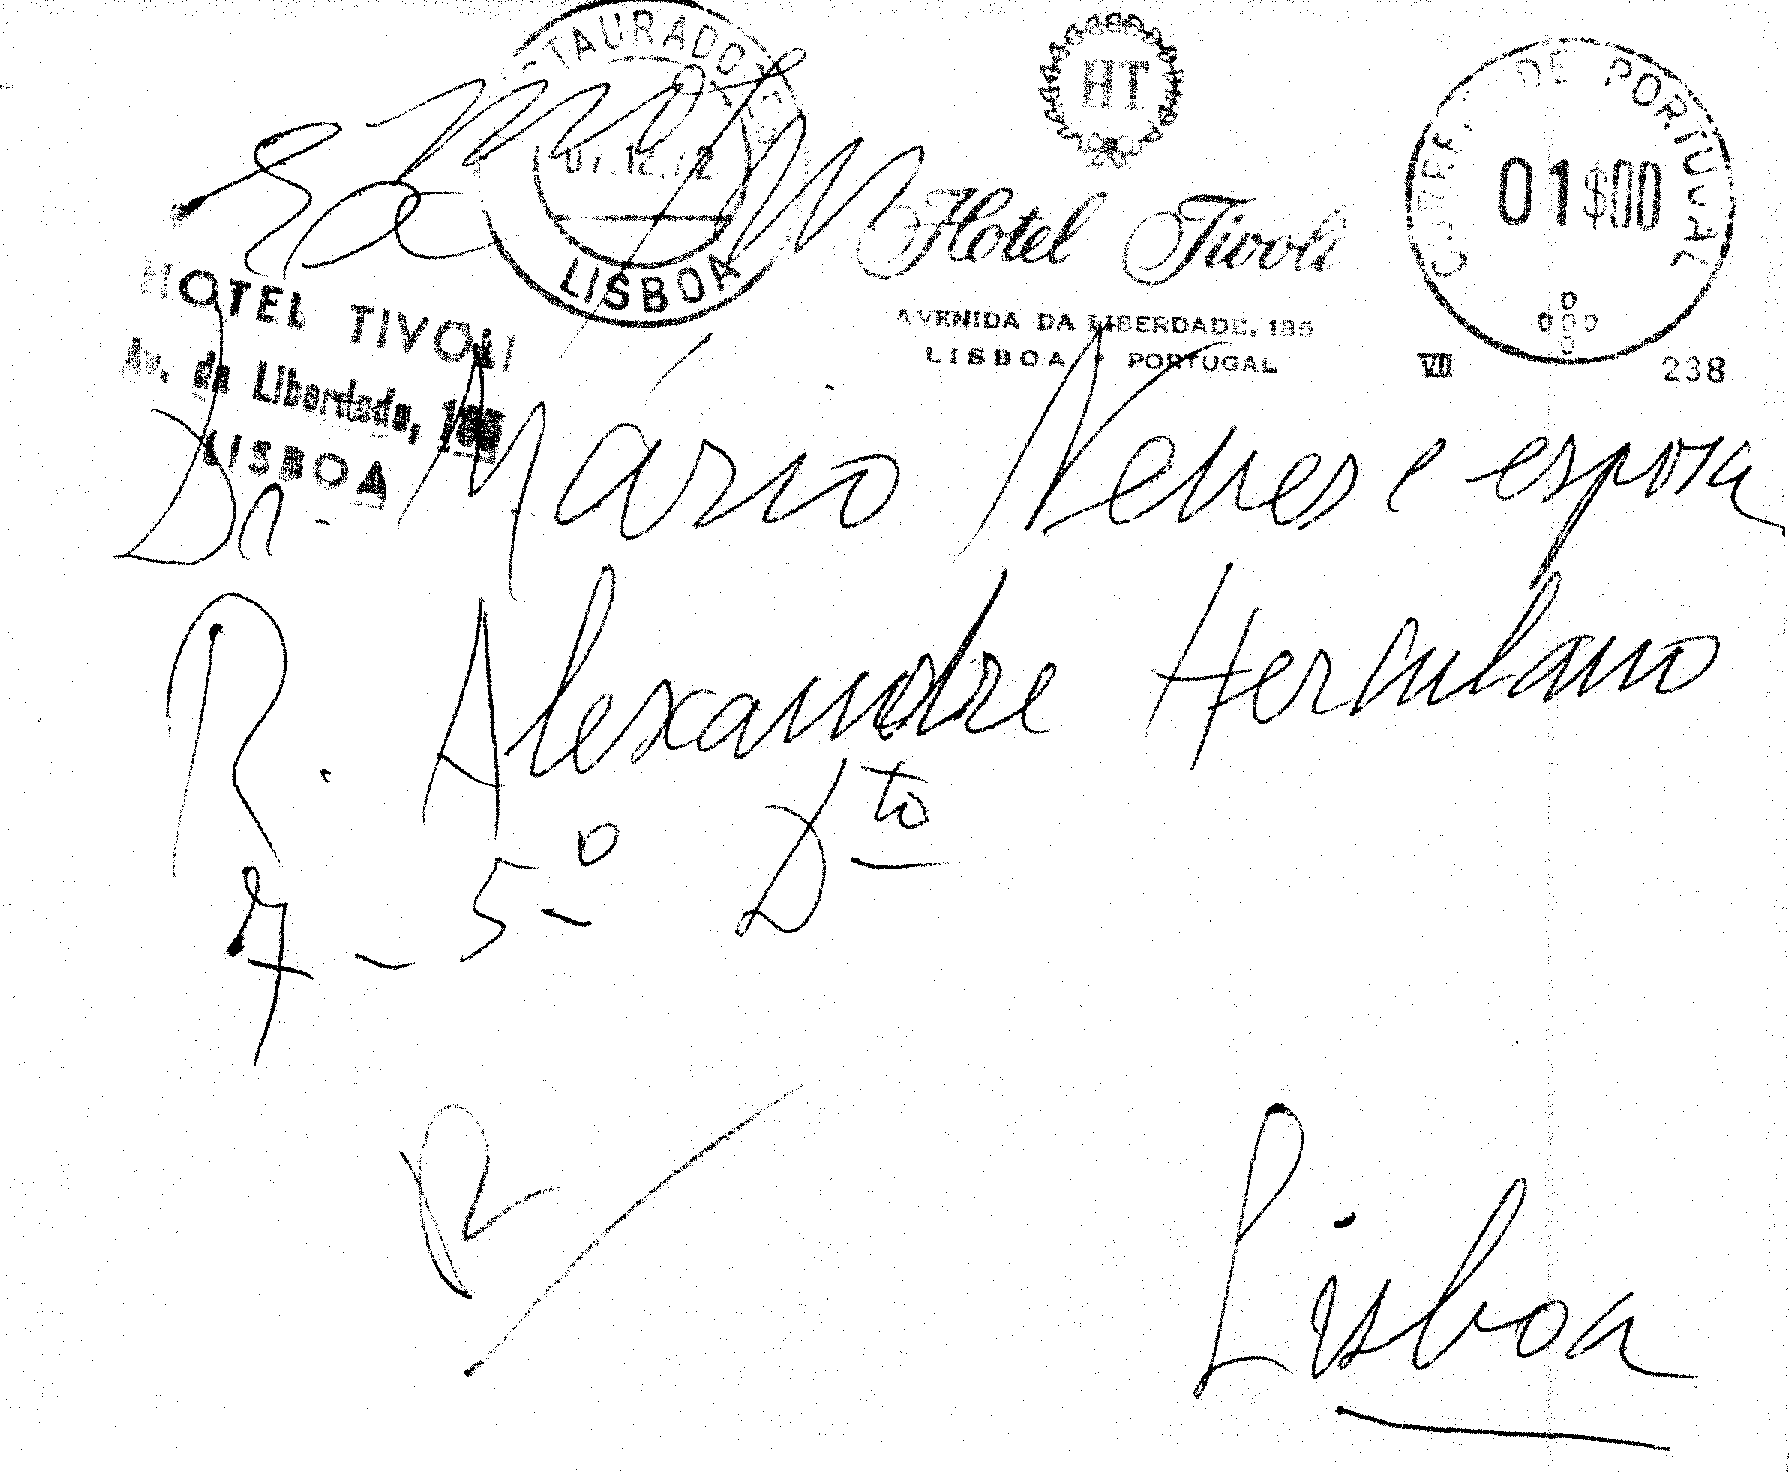 RESTAURADORES
01.12.72
LISBOA
HT
Hotel Tivoli
AVENIDA DA LIBERDADE, 185
LISBOA • PORTUGAL
C.T.T. DE PORTUGAL
01$00
VII 238
HOTEL TIVOLI
Av. da Liberdade, 185
LISBOA
Dr. Mário Neves e esposa
R. Alexandre Herculano
7 - 5º Dto
Lisboa